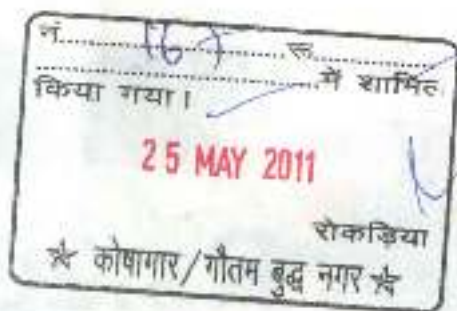 नं.............167............रू............
............................में शामिल
किया गया।
25 MAY 2011
रोकड़िया
☆ कोषागार/गौतम बुद्ध नगर ☆